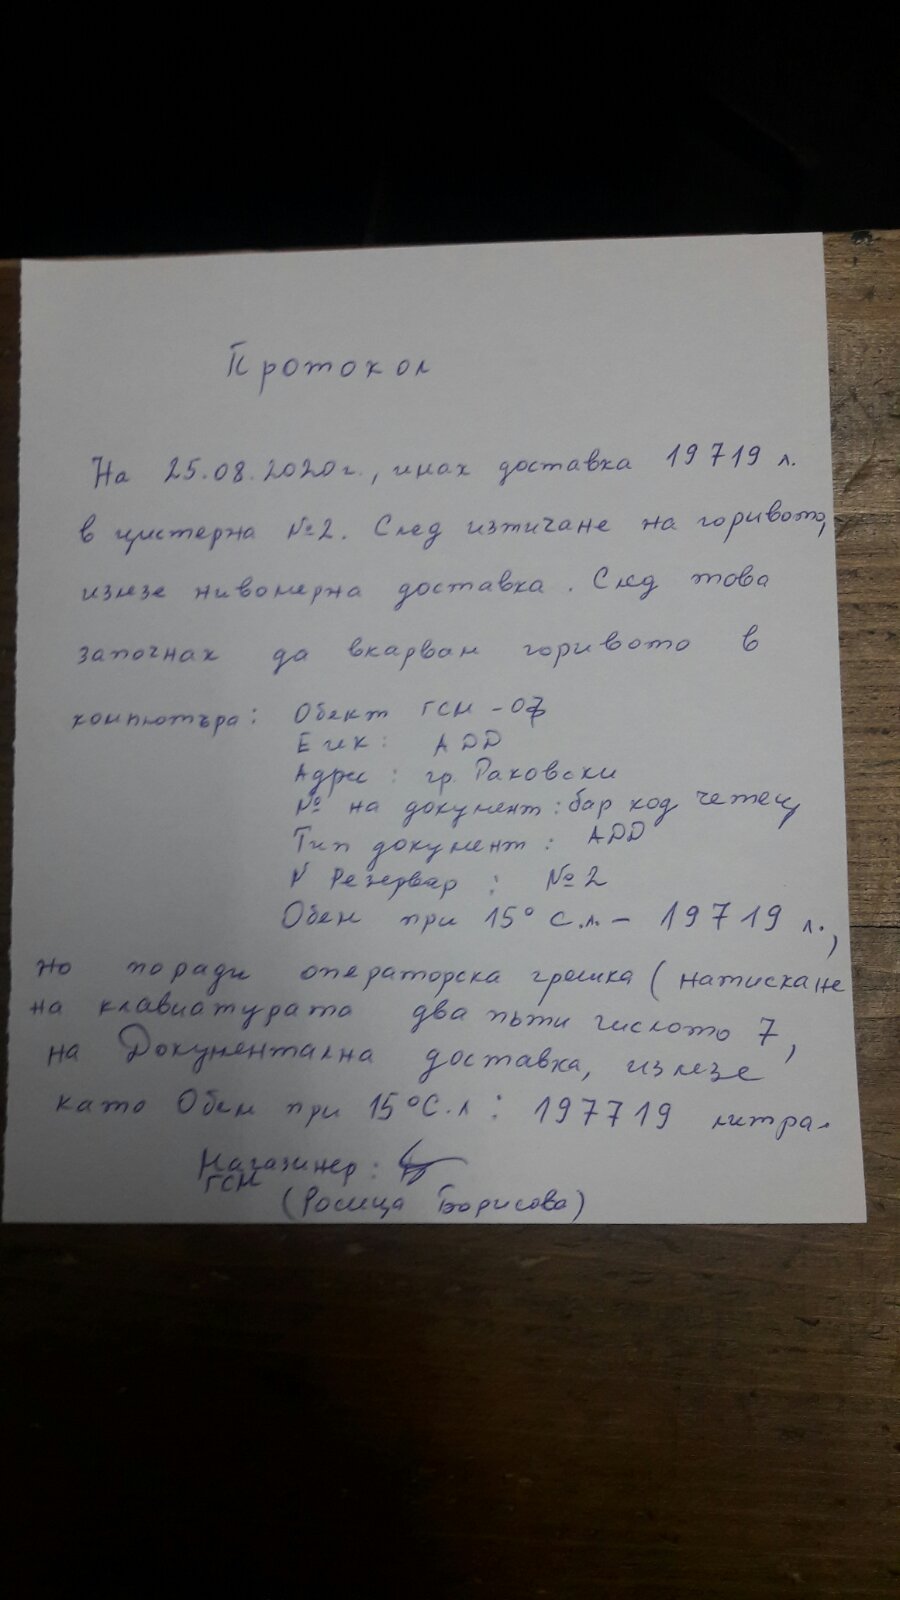 Протокол
На 25.08.2020г., имах доставка 19719 л.
в цистерна №2. След изтичане на горивото,
излезе нивомерна доставка. След това
започнах да вкарвам горивото в
компютъра: Обект ГСМ - 07
Еик: АДД
Адрес: гр. Раковски
№ на документ: бар код четец
Тип документ: АДД
N Резервар: №2
Обем при 15° С.л. - 19719 л.,
но поради операторска грешка (натискане
на клавиатурата два пъти числото 7,
на Документална доставка, излезе
като Обем при 15°С.л: 197719 литра.
Магазинер:
ГСМ
(Росица Борисова)